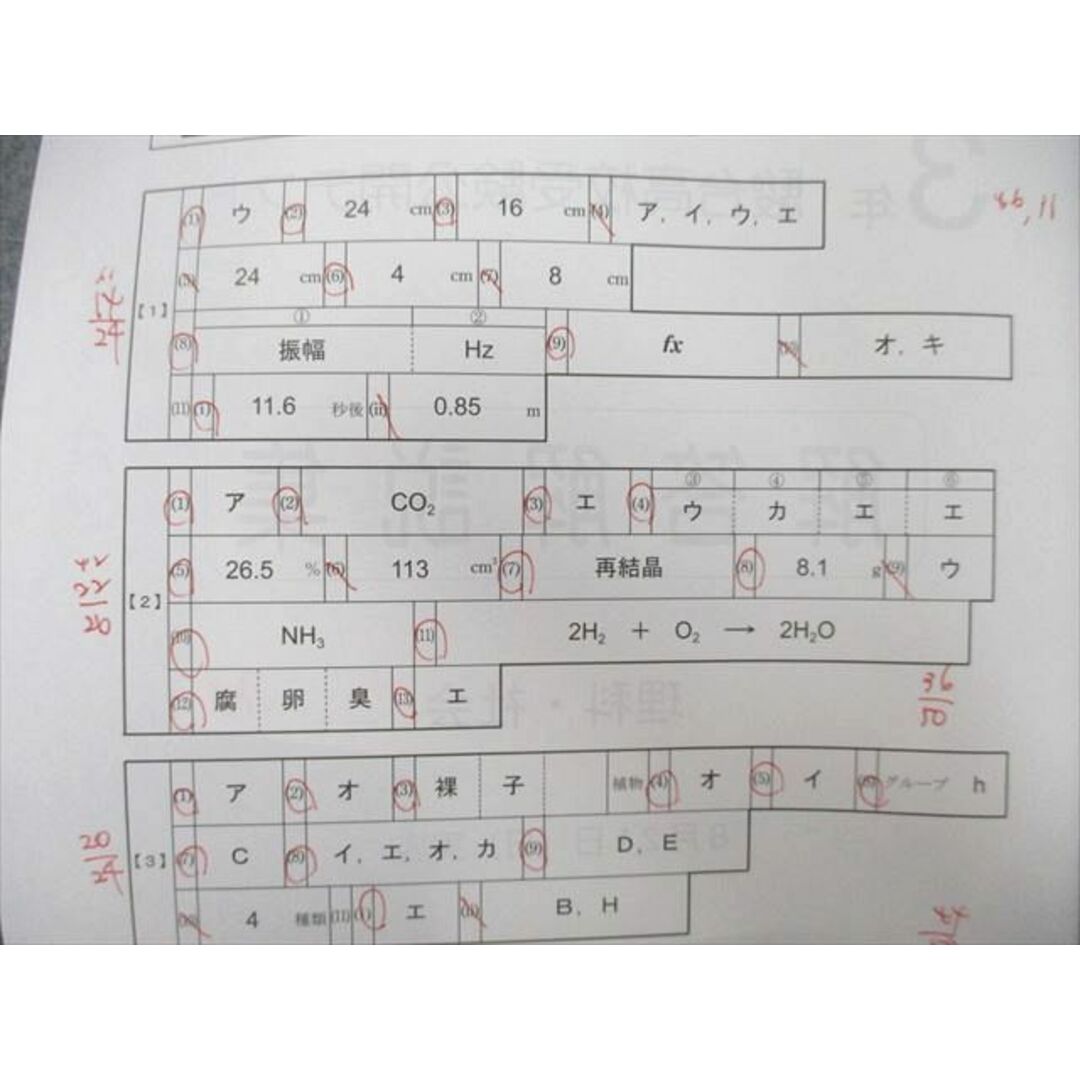 (1) ウ (2) 24 cm (3) 16 cm (4) ア, イ, ウ, エ
(5) 24 cm (6) 4 cm (7) 8 cm
【1】
① ②
(8) 振幅 Hz (9) fx (10) オ, キ
(11) (i) 11.6 秒後 (ii) 0.85 m
24
③ ④ ⑤ ⑥
(1) ア (2) CO₂ (3) エ (4) ウ カ エ エ
(5) 26.5 % (6) 113 cm³ (7) 再結晶 (8) 8.1 g (9) ウ
【2】
(10) NH₃ (11) 2H₂ + O₂ → 2H₂O
(12) 腐 卵 臭 (13) エ
22
26
36
50
(1) ア (2) オ (3) 裸 子 植物 (4) オ (5) イ (6) グループ h
【3】
(7) C (8) イ, エ, オ, カ (9) D, E
(10) 4 種類 (11) (i) エ (ii) B, H
20
24
3年
駿台高校受験公開テスト
解答解説集
理科・社会